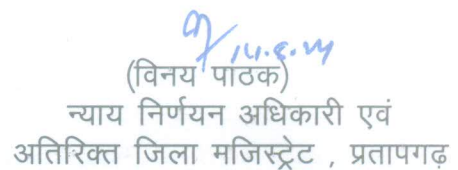 14.8.24
(विनय पाठक)
न्याय निर्णयन अधिकारी एवं
अतिरिक्त जिला मजिस्ट्रेट , प्रतापगढ़